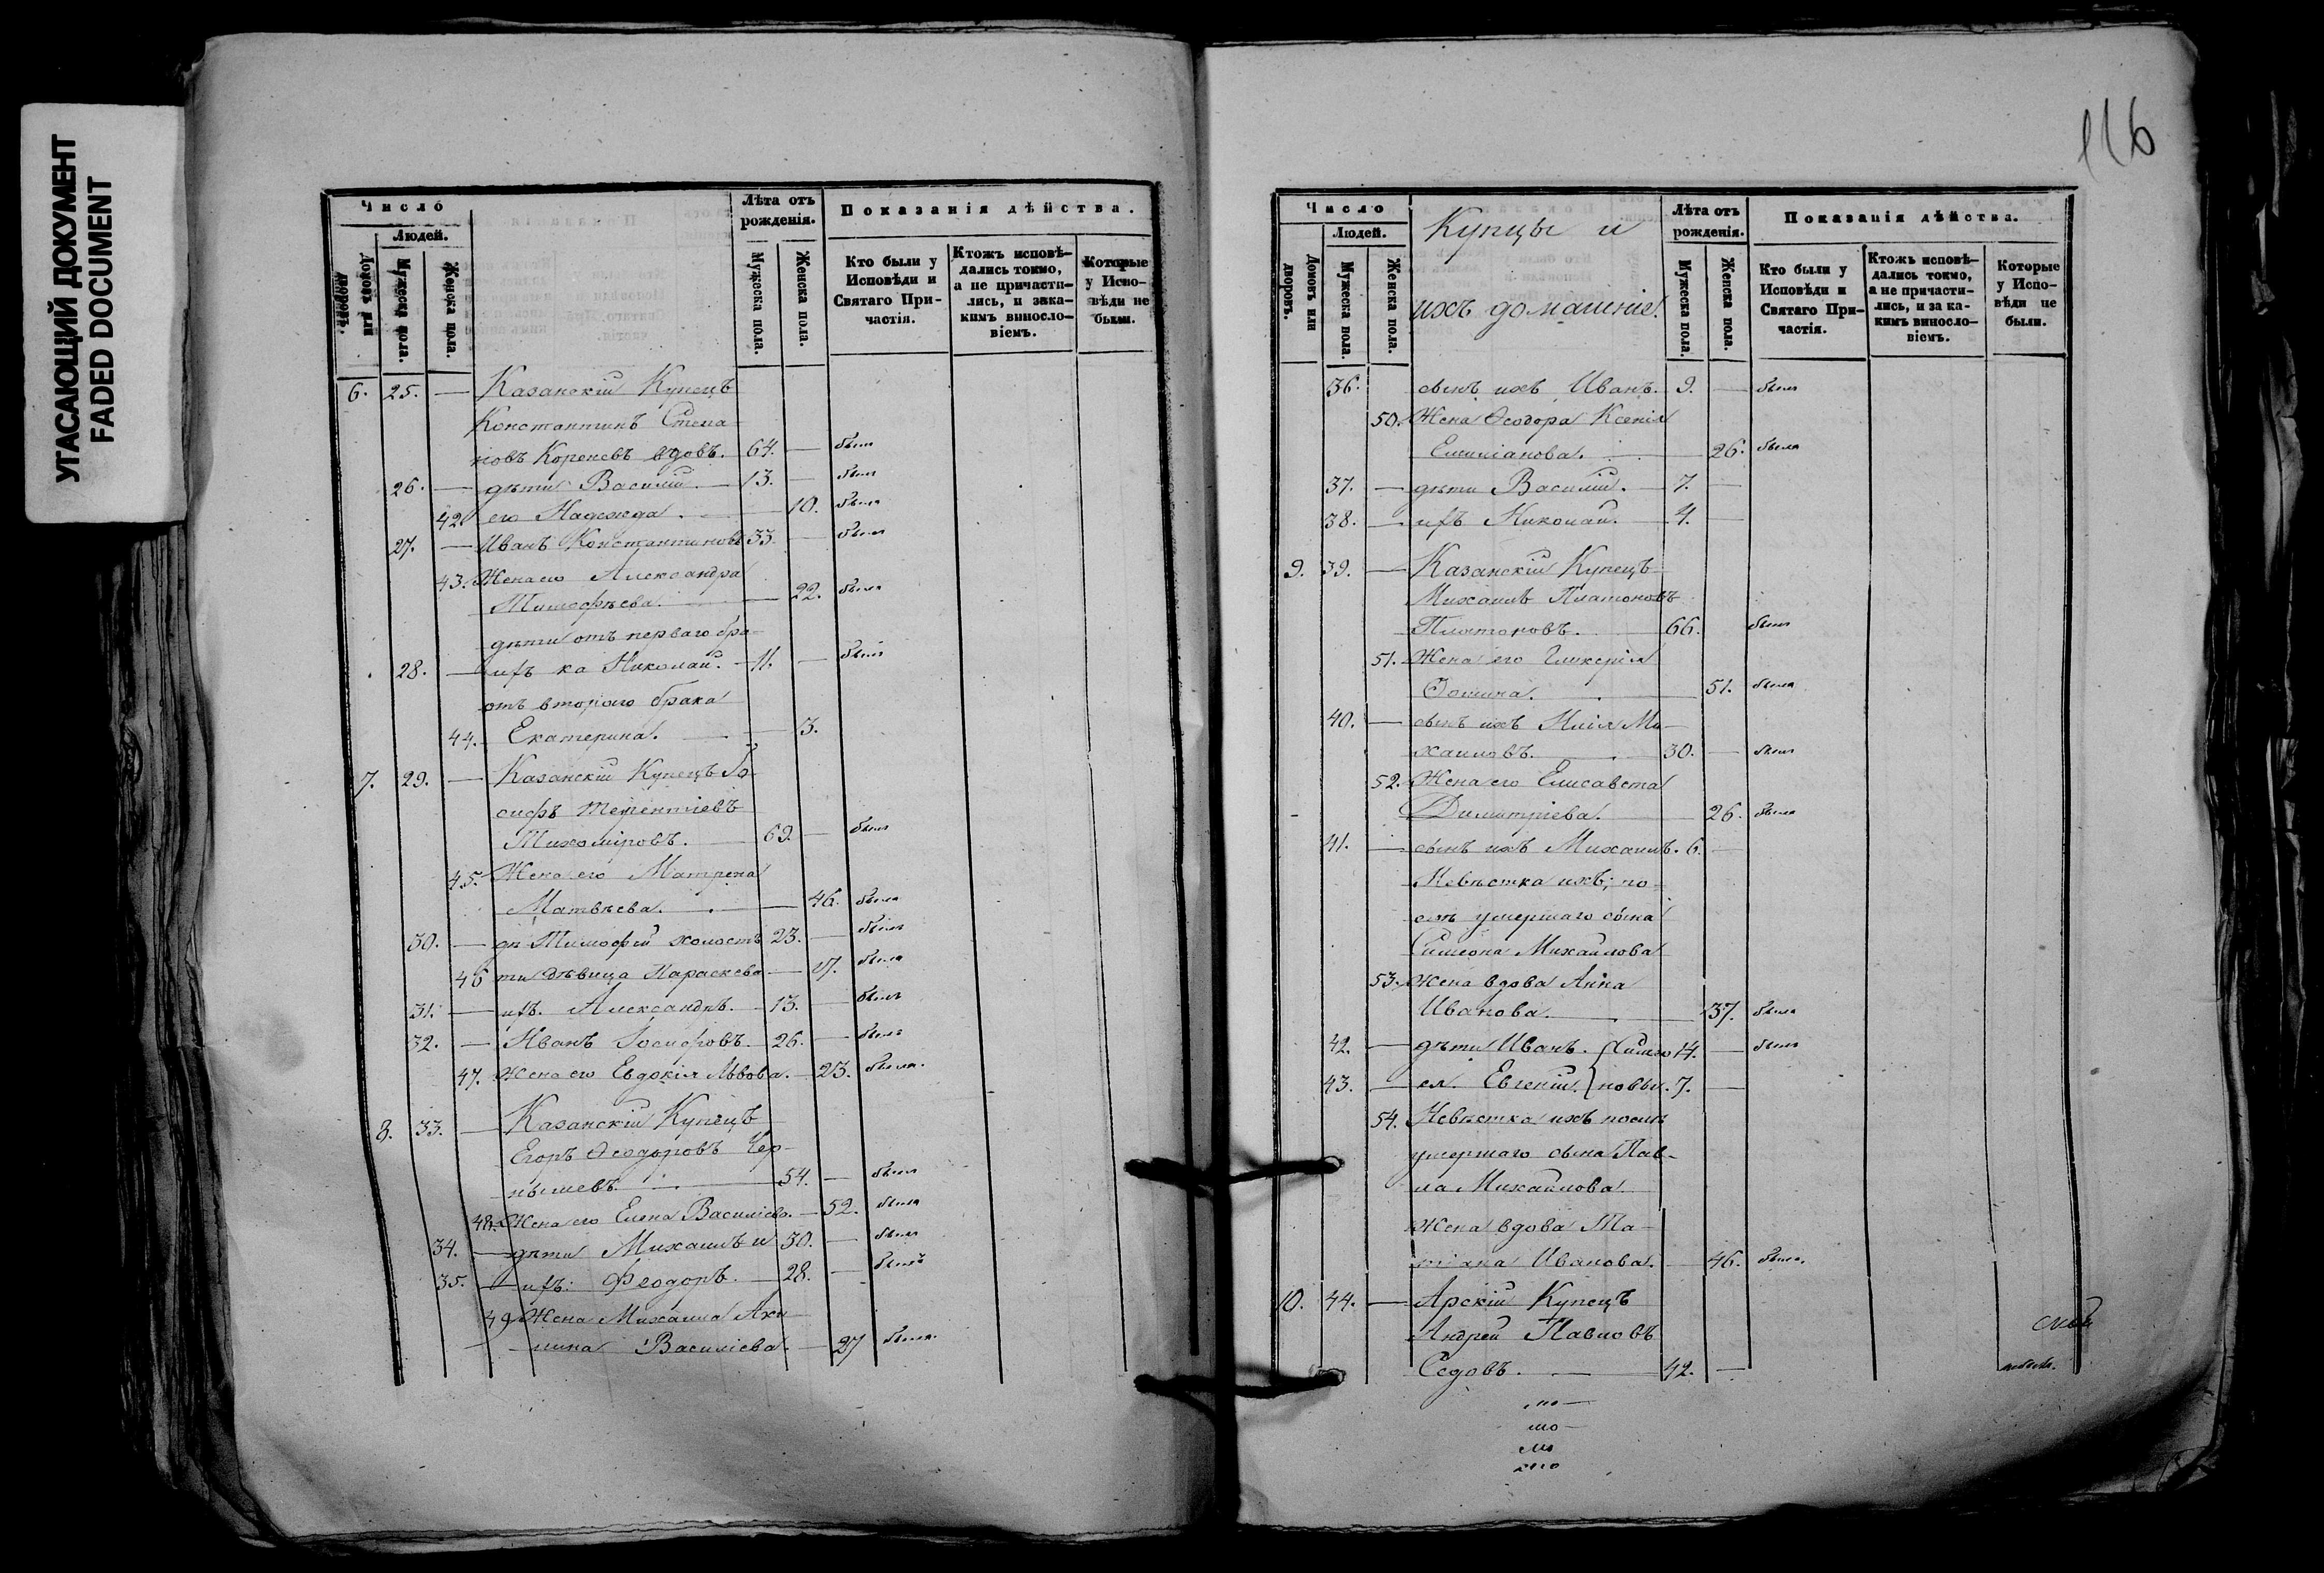 УГАСАЮЩИЙ ДОКУМЕНТ
FADED DOCUMENT
Число
Людей.
Домовъ или дворовъ.
Мужеска пола.
Женска пола.
Лѣта отъ рожденія.
Мужеска пола.
Женска пола.
Показанія дѣйства.
Кто были у Исповѣди и Святаго При-частія.
Ктожъ исповѣ-дались токмо, а не причасти-лись, и зака-кимъ винословіемъ.
Которые у Испо-вѣди не были.
6. 25. — Казанскій Купецъ
Константинъ Степа
новъ Кореневъ вдовъ. 64. — былъ
26. — дѣти Василій. — 13. — былъ
42. его Надежда. — 10. была
27. — Иванъ Константиновъ 33 — былъ
43. Жена его Александра
Тимофѣева. — 22. была
дѣти отъ перваго бра-
28. — ихъ ка Николай. — 11. — былъ
отъ втораго брака
44. Екатерина. — 3.
7. 29. — Казанскій Купецъ Іо-
сифъ Терентіевъ
Тихоміровъ. — 69. — былъ
45. Жена его Матрена
Матвѣева. — 46. была
30. — дѣ Тимофей холостъ 23. — былъ
46 ти дѣвица Параскева — 17. была
31. — ихъ. Александръ. — 13. — былъ
32. — Иванъ Іосифовъ. 26. — былъ
47. Жена его Евдокія Львова. — 23. была.
8. 33. — Казанскій Купецъ
Егоръ Ѳеодоровъ Чер-
нышевъ. — 54. — былъ
48. Жена его Елена Василіева. — 52. была
34. — дѣти Михаилъ и 30. — былъ
35. — ихъ: Ѳеодоръ. — 28. — былъ
49 Жена Михаила Аки
лина Василіева. — 27 была.
116
Число
Людей.
Домовъ или дворовъ.
Мужеска пола.
Женска пола.
Купцы и
ихъ домашніе.
Лѣта отъ рожденія.
Мужеска пола.
Женска пола.
Показанія дѣйства.
Кто были у Исповѣди и Святаго При-частія.
Ктожъ исповѣ-дались токмо, а не причасти-лись, и за ка-кимъ винословіемъ.
Которые у Испо-вѣди не были.
36. сынъ ихъ Иванъ. 9. — былъ
50. Жена Ѳеодора Ксенія
Емиліанова. — 26. была
37. — дѣти Василій. — 7. —
38. — ихъ Николай. — 4. —
9. 39. — Казанскій Купецъ
Михаилъ Платоновъ
Платоновъ. — 66. былъ
51. Жена его Гликерія
Ѳомина. — 51. была
40. — сынъ ихъ Илія Ми-
хаиловъ. — 30. — былъ
52. Жена его Елисавета
Димитріева. — 26. была
41. — сынъ ихъ Михаилъ. 6. —
Невѣстка ихъ, по-
слѣ умершаго сына
Симеона Михаилова
53. Жена вдова Анна
Иванова. — 37. была
42. — дѣти Иванъ. Симео 14. — былъ
43. — ея. Евгеній. новы. 7. —
54. Невѣстка ихъ послѣ
умершаго сына Пав-
ла Михаилова
Жена вдова Та-
тіана Иванова. — 46. была.
10. 44. — Арскій Купецъ
Андрей Павловъ
Седовъ. — 42. —